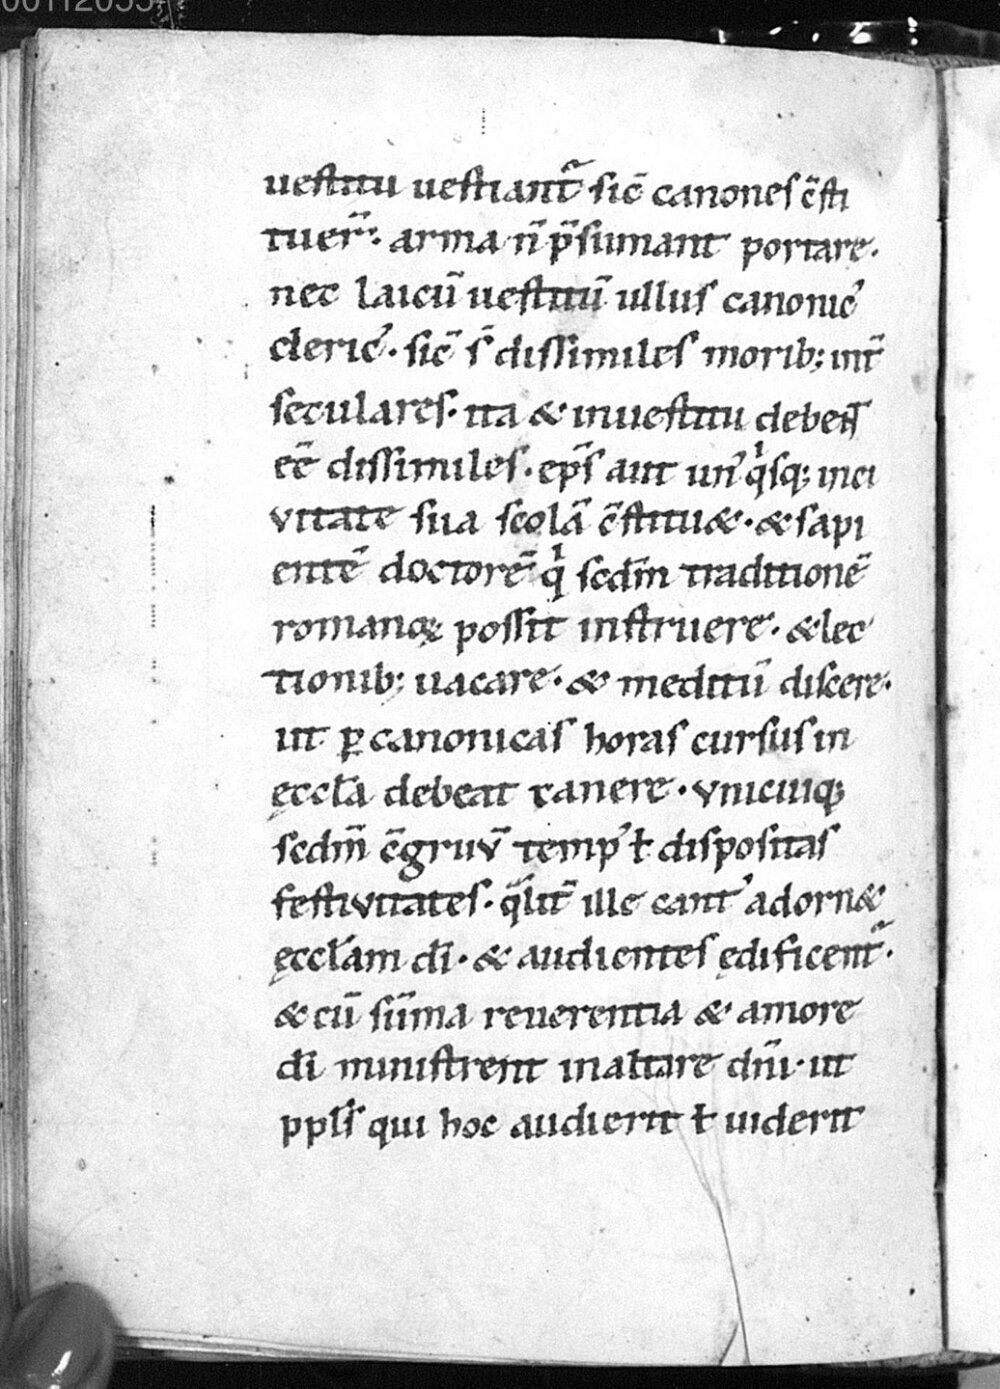 00112055
uestitu uestiant᷑ sic̄ canones c̄sti
tuer̄. arma n̄ p̄sumant portare.
nec laicū uestitū ullus canonic᾽
cleric᾽. sic̄ s̄ dissimiles morib; int̄
seculares. ita & inuestitu debent
eē dissimiles. ep̄s aut un᾽qͥsq; inci
vitate sua scolā c̄stitu&. & sapi
entē doctorē qͥ secdm̄ traditionē
romanoꝝ possit instruere. & lec
tionib; uacare. & meditū discere.
ut ꝑ canonicas horas cursus in
ęccl̄a debeat canere. vnicuiq;
secdm̄ c̄gruv̄ temp᾽ ł dispositas
festivitates. q̄lit̄ ille cant᾽ adorn&
ęccl̄am dī. & audientes ędificent᷑.
& cū sūma reuerentia & amore
dī ministrent inaltare dn̄i. ut
ppl̄s qui hoc audierit ł uiderit